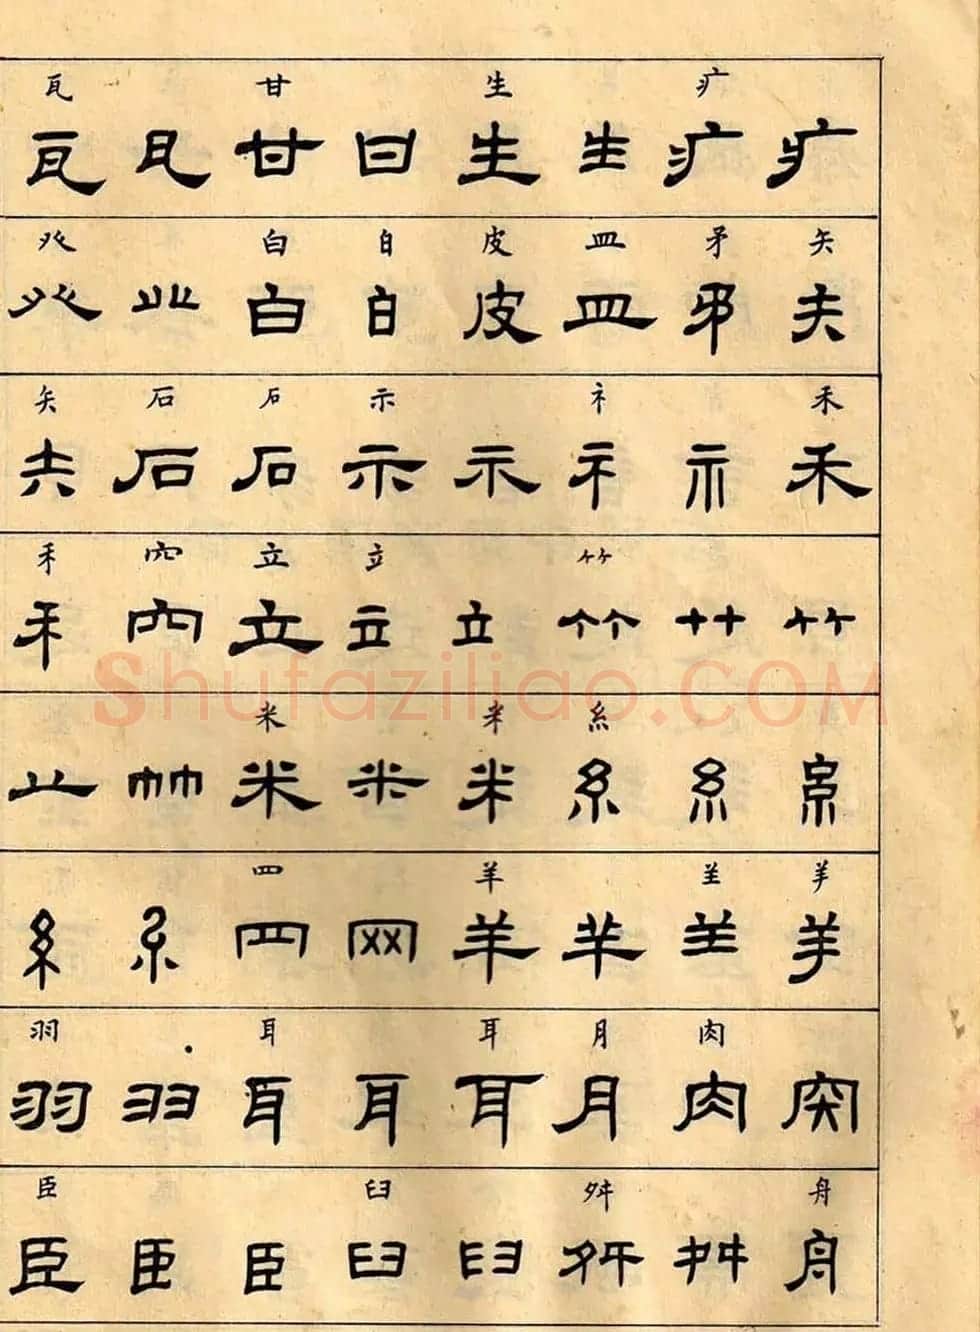 瓦 甘 生 疒
瓦 瓦 甘 甘 生 生 疒 疒
癶 白 白 皮 皿 矛 矢
癶 癶 白 白 皮 皿 矛 矢
矢 石 石 示 礻 禾
矢 石 石 示 示 礻 示 禾
禾 穴 立 立 ⺮
禾 穴 立 立 立 ⺮ ⺮ ⺮
Shufaziliao.COM
米 米 糸
米 米 米 糸 糸 糸
罒 羊 羊 羊
糸 糸 罒 网 羊 羊 羊 羊
羽 耳 耳 月 肉
羽 羽 耳 耳 耳 月 肉
臣 臼 舛 舟
臣 臣 臣 臼 臼 舛 舛 舟